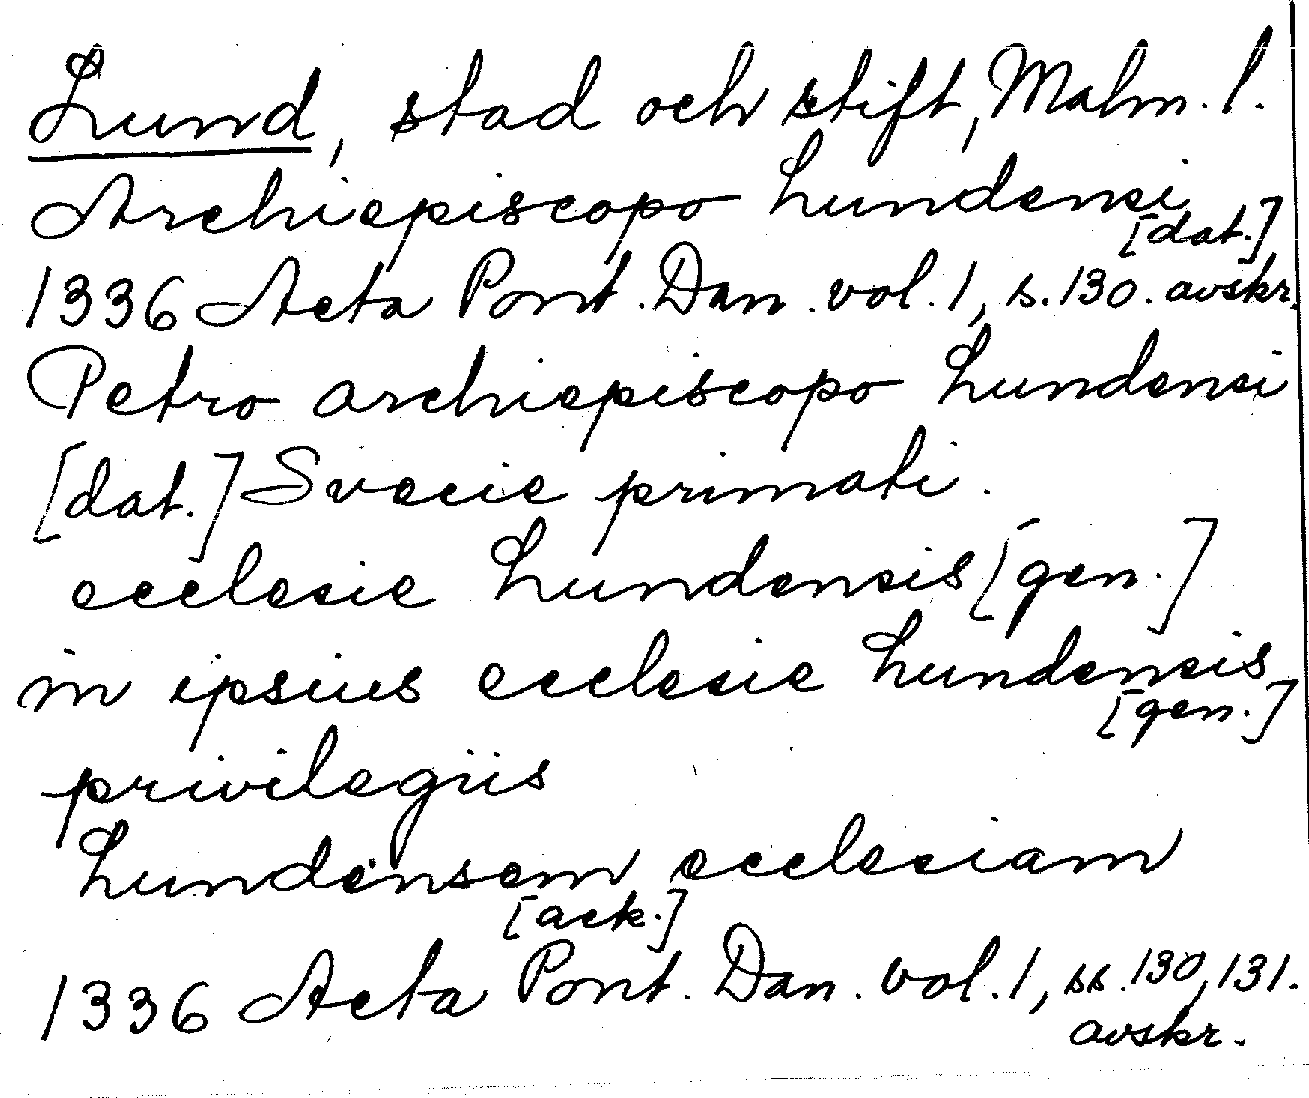 Lund, stad och stift, Malm. l.
Archiepiscopo Lundensi
[dat.]
1336 Acta Pont. Dan. vol. 1, s. 130. avskr.
Petro archiepiscopo Lundensi
[dat.] Svecie primati.
ecclesie Lundensis [gen.]
in ipsius ecclesie Lundensis
[gen.]
privilegiis
Lundensem ecclesiam
[ack.]
1336 Acta Pont. Dan. vol. 1, ss. 130, 131.
avskr.